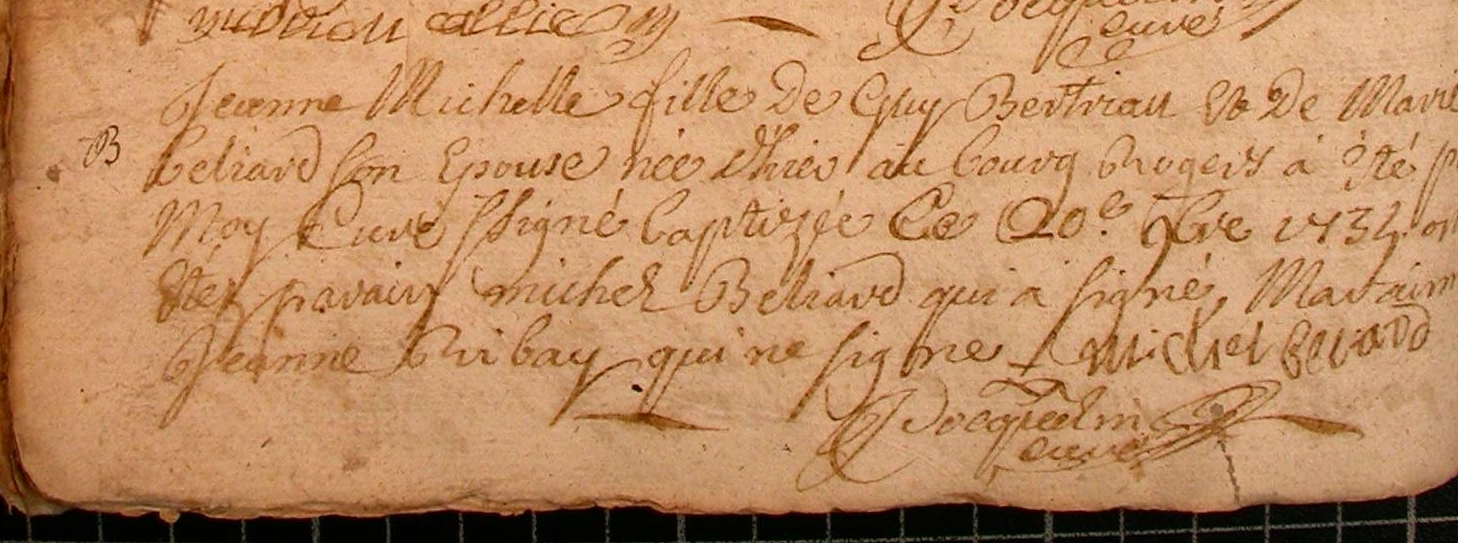 curé
Jeanne Michelle fille De Guy Bertriau Et De Marie
B
beliard son Epouse née d'hier au bourg Rogers à Eté p
Moy Curé ssigné baptizée Ce 20.e Xbre 1734 on
Etez parain michel Beliard qui a signé, Maraim
Jeanne Ribay qui ne signe michel beliard
curé